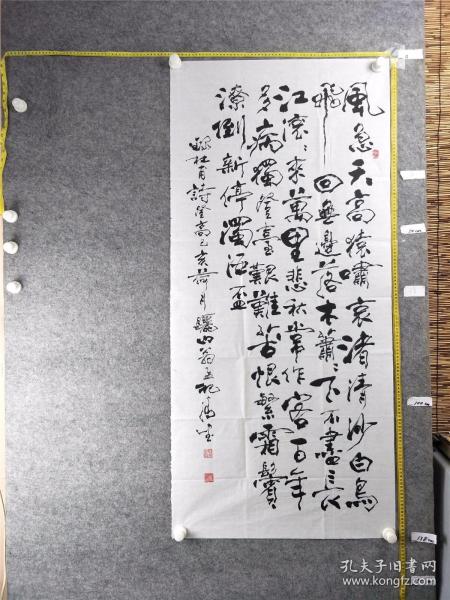 風急天高猿嘯哀渚清沙白鳥
飛回無邊落木蕭〻下不盡長
江滾〻來萬里悲秋常作客百年
多病獨登臺艱難苦恨繁霜鬢
潦倒新停濁酒盃
錄杜甫詩登高己亥荷月驪山翁
孔夫子旧書网
www.kongfz.com